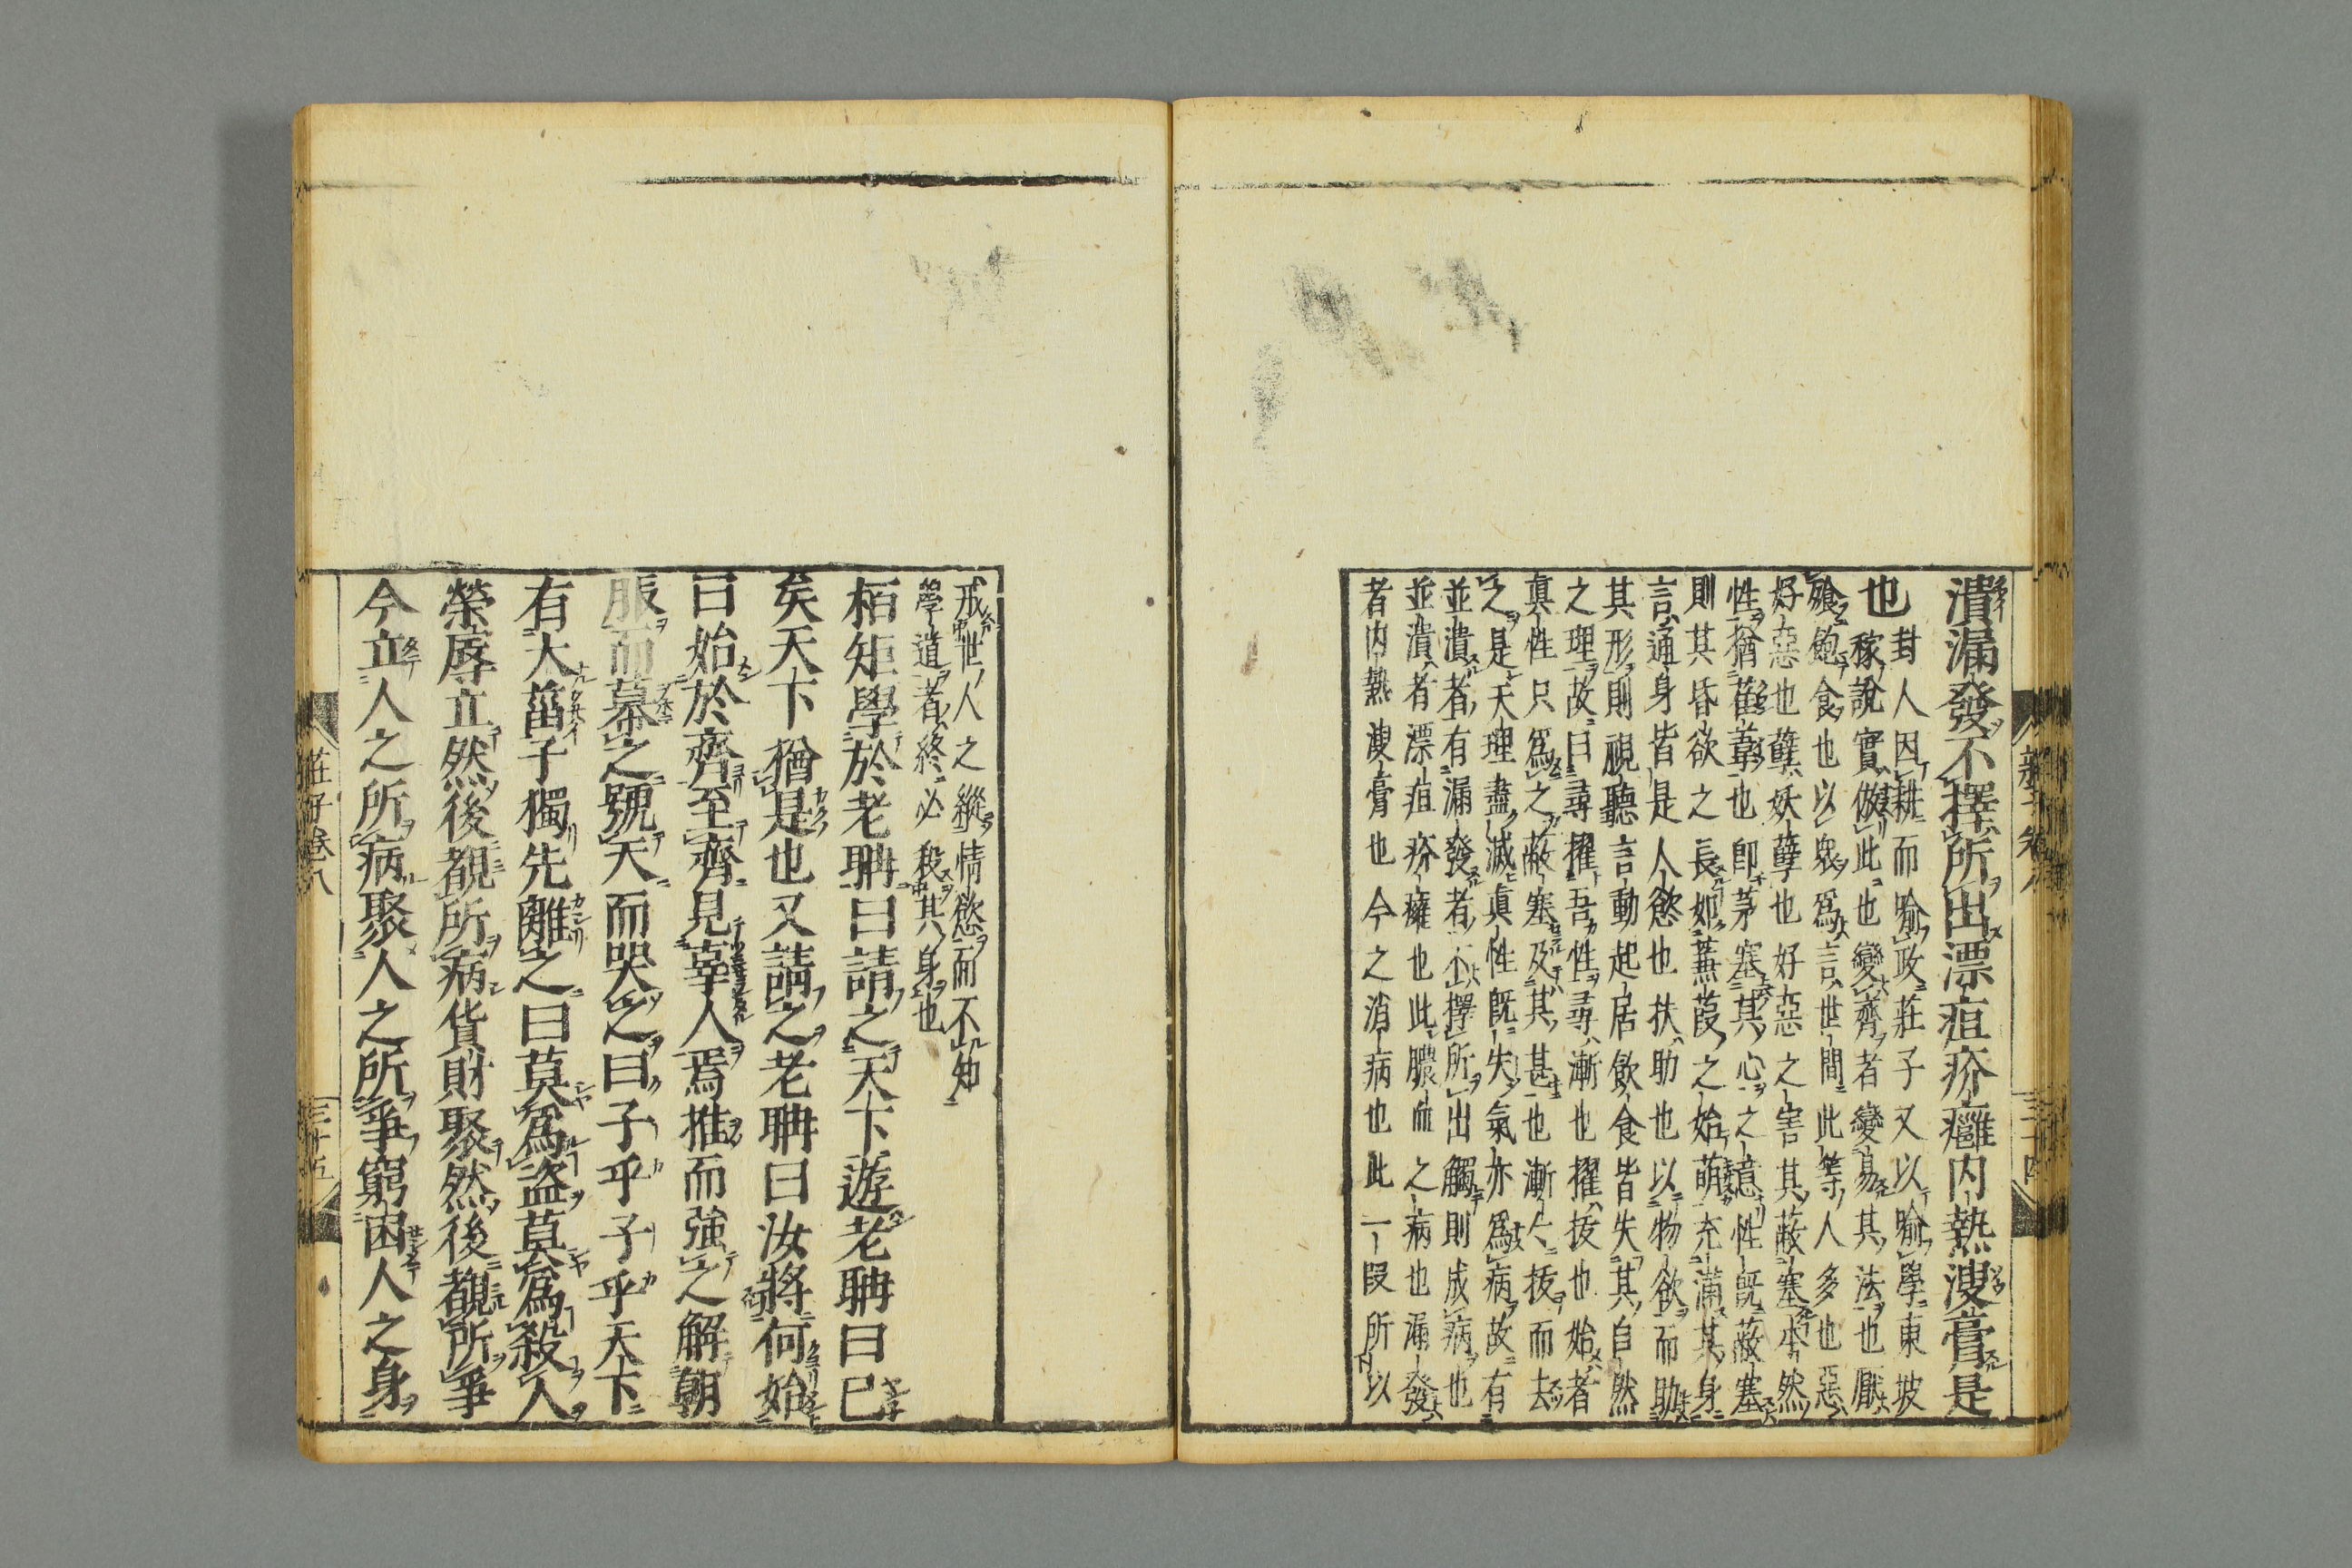 潰漏發不擇所出漂疽疥癰内熱溲膏是
也
封人因耕而喻政莊子又以喻學東坡
稼說實倣此也變齊者變易其法也厭
飱飽食也以衆爲言世間此等人多也惡
好惡也孽妖孽也好惡之害其蔽塞本然
性猶萑葦也即茅塞其心之意性既蔽塞
則其昏欲之長如蒹葭之始萌充滿其身
言通身皆是人慾也扶助也以物欲而助
其形則視聽言動起居飲食皆失其自然
之理故曰尋擢吾性尋漸也擢拔也始者
眞性只爲之蔽塞及其甚也漸々拔而去
之是天理盡滅眞性既失氣亦爲病故有
並潰者有漏發者不擇所出觸則成病也
並潰者漂疽疥癰也此膿血之病也漏發
者内熱溲膏也今之消病也此一段所以
莊子卷八
戒世人之縱情慾而不知
學道者終必殺其身也
栢矩學於老聃曰請之天下遊老聃曰已
矣天下猶是也又請之老聃曰汝將何始
曰始於齊至齊見辜人焉推而強之解朝
服而幕之號天而哭之曰子乎子乎天下
有大菑子獨先離之曰莫爲盗莫爲殺人
榮辱立然後覩所病貨財聚然後覩所爭
今立人之所病聚人之所爭窮困人之身
莊子卷八
三十五